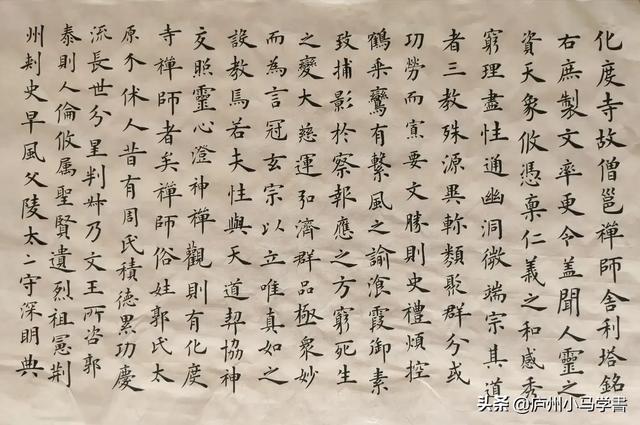 化度寺故僧邕禪師舍利塔銘
右庶製文率更令盖聞人靈之
資天象攸憑稟仁義之和感秀
窮理盡性通幽洞微端宗其道
者三教殊源異軫類聚群分或
功勞而寡要文勝則史禮煩控
鶴乘鸞有繫風之諭飡霞御素
致捕影於察報應之方窮死生
之變大慈運弘濟群品極衆妙
而為言冠玄宗以立唯真如之
設教焉若夫性與天道契協神
交照靈心澄神禪觀則有化度
寺禪師者矣禪師俗姓郭氏太
原介休人昔有周氏積德累功慶
流長世分星判叔乃文王所咨郭
泰則人倫攸属聖賢遺烈祖憲荆
州刾史早風父陵太二守深明典
头条 @庐州小马学書